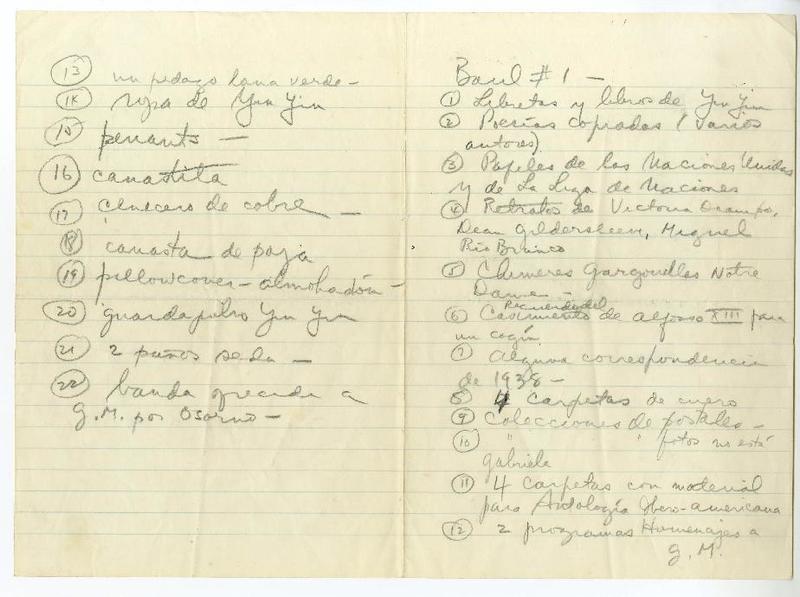 Baul # 1 —
① Libretas y libros de Yin Yin
② Poesías copiadas (varios
autores)
③ Papeles de las Naciones Unidas
y de La Liga de Naciones
④ Retratos de Victoria Ocampo,
Dean Gildersleeve, Miguel
Río Branco
⑤ Chimeres Gargouilles Notre
Dame —
Recuerdo del
⑥ Casamiento de Alfonso XIII para
un
⑦ Alguna correspondencia
de 1938 —
8 4 carpetas de cuero
⑨ Colecciones de postales —
⑩ " " fotos no está
Gabriela
⑪ 4 carpetas con material
para Antología Ibero-americana
⑫ 2 programas Homenajes a
G. M.
⑬ un pedazo lana verde —
⑭ ropa de Yin Yin
⑮ penants —
⑯ canastita
⑰ cenicero de cobre —
⑱ canasta de paja
⑲ pillowcover - almohadón —
⑳ guardapolvo Yin Yin
㉑ 2 paños seda —
㉒ banda ofrecida a
G. M. por Osorno —